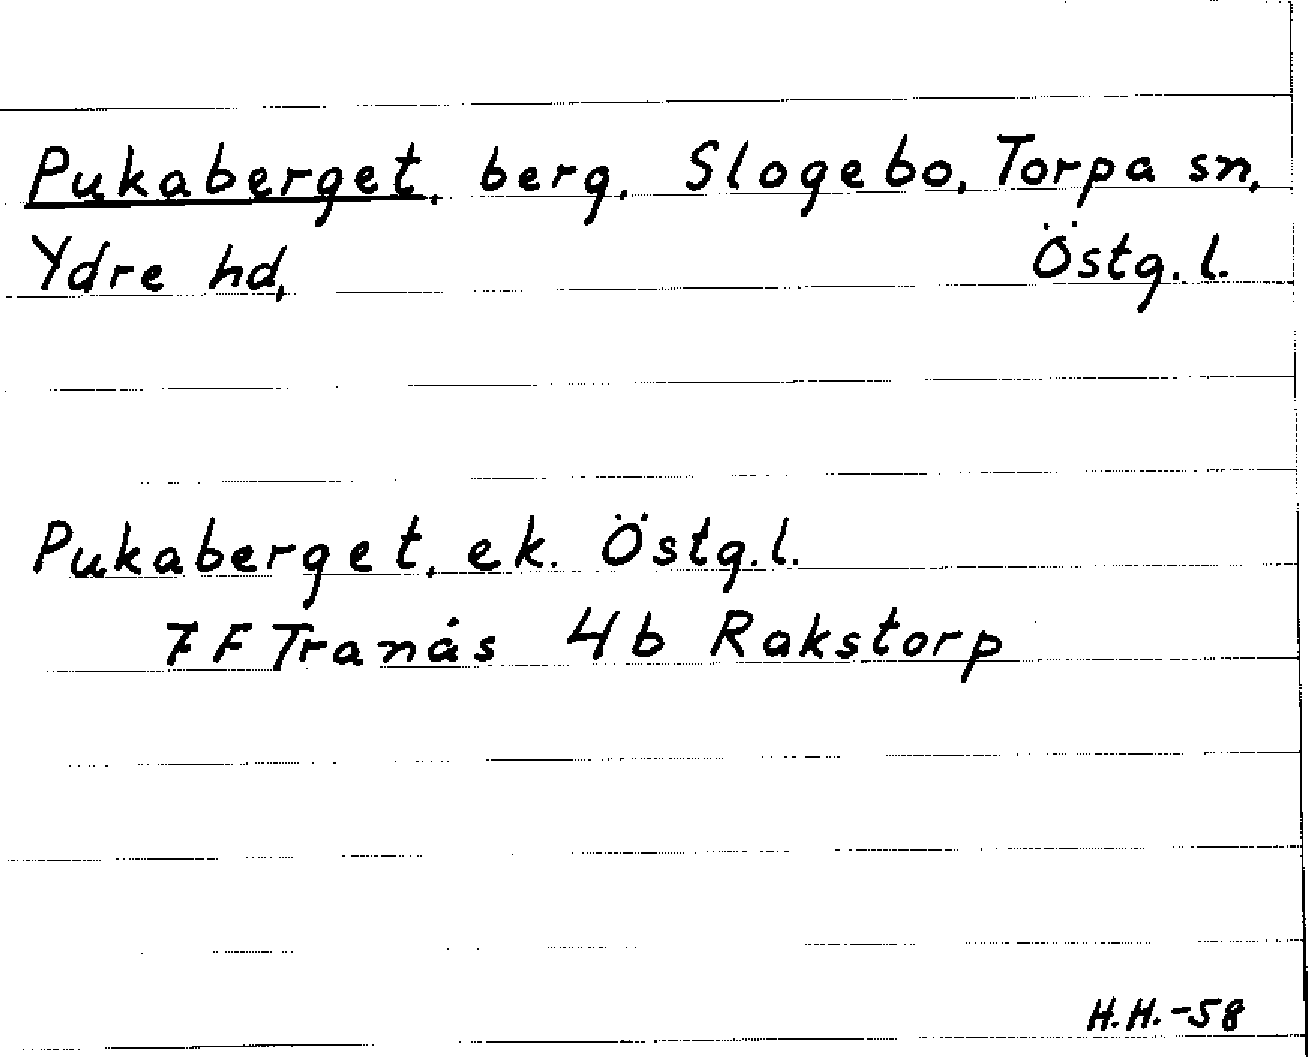 Pukaberget, berg, Slogebo, Torpa sn,
Ydre hd, Östg.l.
Pukaberget, ek. Östg.l.
7 F Tranås 4b Rakstorp
H.H.-58